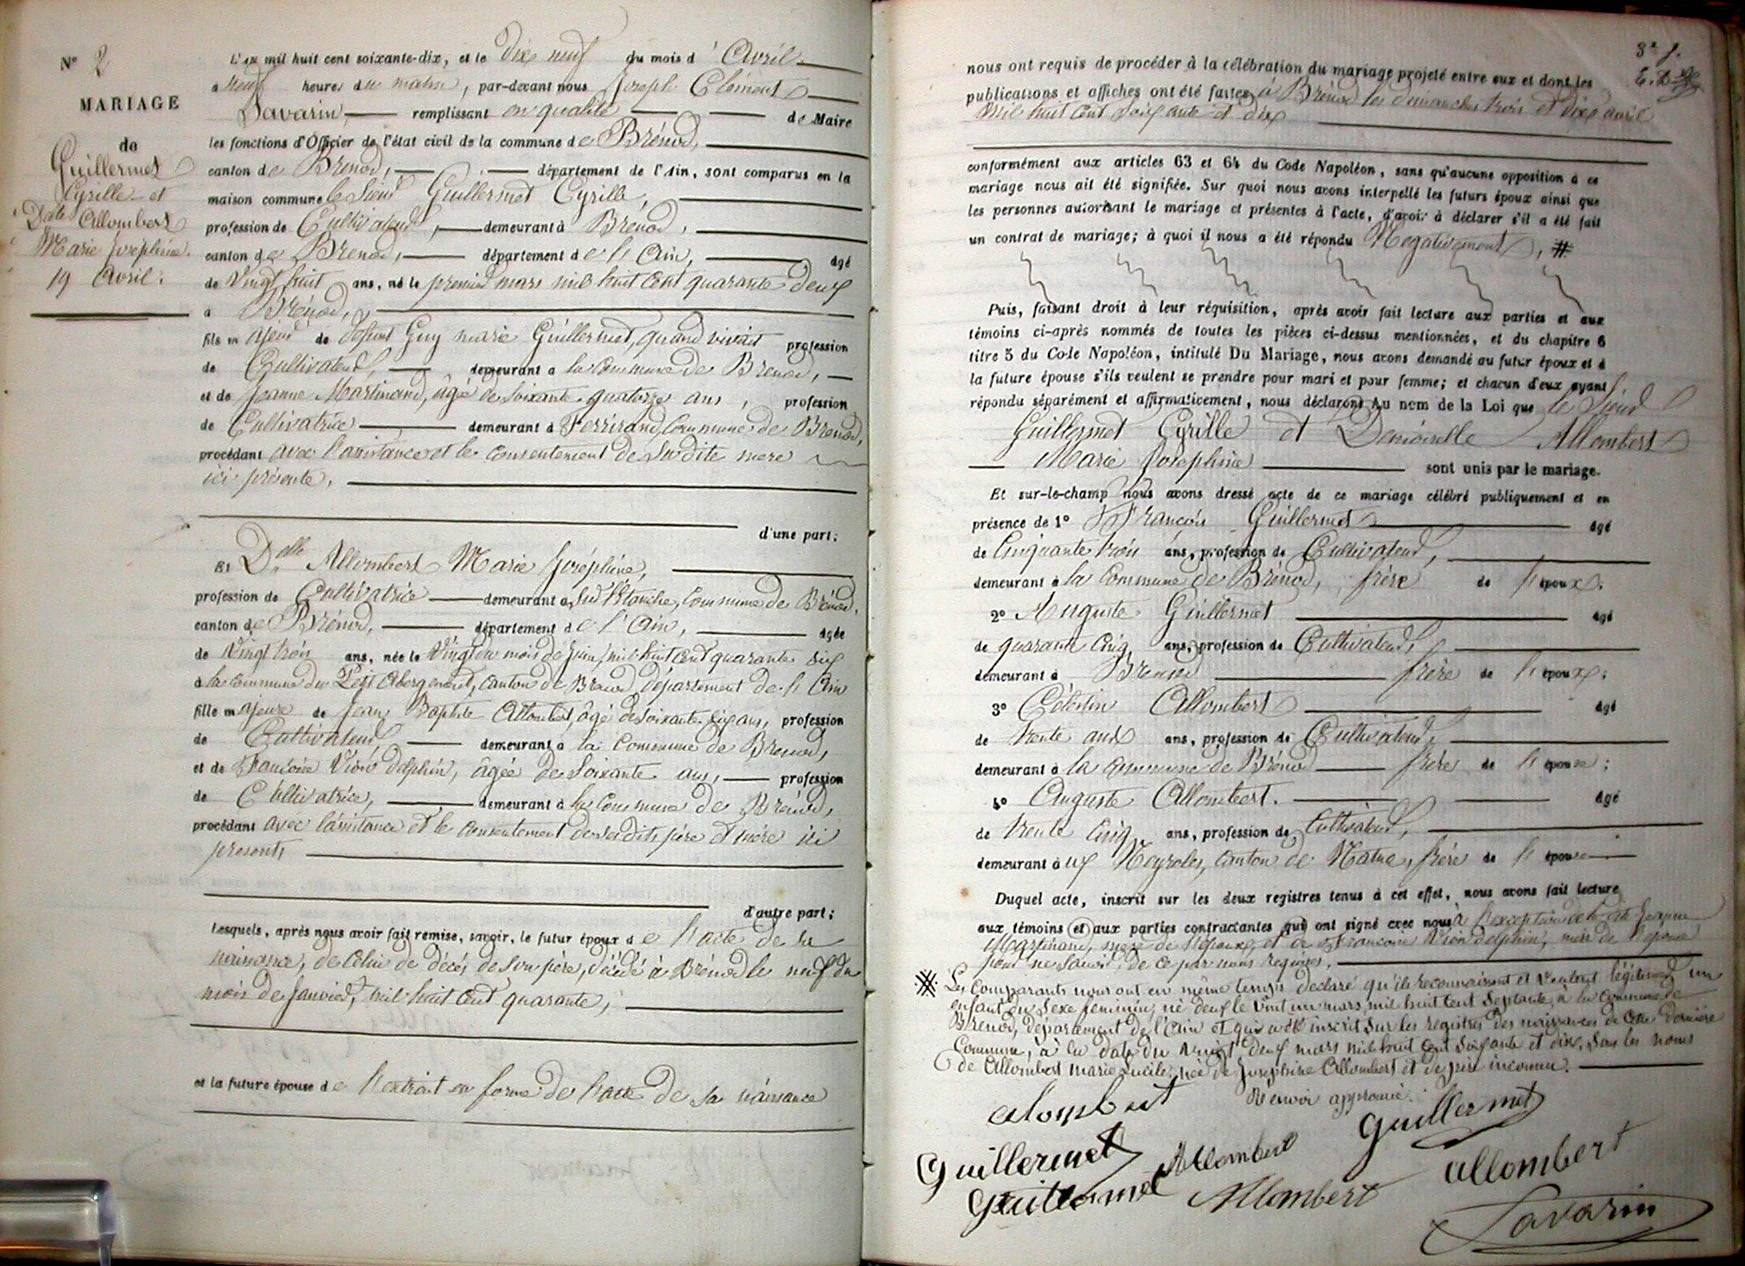 N° 2
MARIAGE
de
Guillermet
Cyrille et
Dlle Allombert
Marie Joséphine.
19 Avril.
L'an mil huit cent soixante-dix, et le dix neuf du mois d'Avril
à neuf heures du matin, par-devant nous Joseph Clément
Savarin remplissant en qualité de Maire
les fonctions d'Officier de l'état civil de la commune de Brénod,
canton de Brénod, département de l'Ain, sont comparus en la
maison commune le Sieur Guillermet Cyrille,
profession de Cultivateur, demeurant à Brénod,
canton de Brénod, département de l'Ain, âgé
de Vingt huit ans, né le premier mars mil huit cent quarante deux
à Brénod,
fils majeur de défunt Guy marie Guillermet, quand vivait profession
de Cultivateur, demeurant à la Commune de Brénod,
et de Jeanne Martinand, âgée de Soixante quatorze ans, profession
de Cultivatrice demeurant à Ferrirand, Commune de Brénod,
procédant avec l'assistance et le consentement de Sadite mère
ici présente,
d'une part;
Et Dlle Allombert Marie Joséphine,
profession de Cultivatrice demeurant à Commune de Brénod,
canton de Brénod, département de l'Ain, âgée
de Vingt trois ans, née le Vingt du mois de juin mil huit cent quarante six
à la commune du Petit Abergement, canton de Brénod département de l'Ain
fille majeure de Jean Baptiste Allombert, âgé de soixante six ans, profession
de Cultivateur demeurant à la Commune de Brénod,
et de Françoise Vion delphin, âgée de Soixante ans, profession
de Cultivatrice, demeurant à la Commune de Brénod,
procédant avec l'assistance et le consentement de sesdits père et mère ici
présents
d'autre part;
Lesquels, après nous avoir fait remise, savoir, le futur époux de l'acte de sa
naissance, de celui de décès de son père, décédé à Brénod le neuf du
mois de Janvier, mil huit cent quarante,
et la future épouse de l'extrait en forme de l'acte de sa naissance
3e f.
nous ont requis de procéder à la célébration du mariage projeté entre eux et dont les
publications et affiches ont été faites à Brénod les dimanches trois et dix avril
mil huit cent soixante et dix
conformément aux articles 63 et 64 du Code Napoléon, sans qu'aucune opposition à ce
mariage nous ait été signifiée. Sur quoi nous avons interpellé les futurs époux ainsi que
les personnes autorisant le mariage et présentes à l'acte, d'avoir à déclarer s'il a été fait
un contrat de mariage; à quoi il nous a été répondu Négativement, #
Puis, faisant droit à leur réquisition, après avoir fait lecture aux parties et aux
témoins ci-après nommés de toutes les pièces ci-dessus mentionnées, et du chapitre 6
titre 5 du Code Napoléon, intitulé Du Mariage, nous avons demandé au futur époux et à
la future épouse s'ils veulent se prendre pour mari et pour femme; et chacun d'eux ayant
répondu séparément et affirmativement, nous déclarons Au nom de la Loi que le Sieur
Guillermet Cyrille et Demoiselle Allombert
Marie Joséphine sont unis par le mariage.
Et sur-le-champ nous avons dressé acte de ce mariage célébré publiquement et en
présence de 1° François Guillermet âgé
de Cinquante trois ans, profession de Cultivateur,
demeurant à la Commune de Brénod, frère de l'époux.
2° Auguste Guillermet âgé
de quarante cinq ans, profession de Cultivateur,
demeurant à Brénod frère de l'époux;
3° Célestin Allombert âgé
de trente ans, profession de Cultivateur,
demeurant à la commune de Brénod frère de l'épouse;
4° Auguste Allombert. âgé
de trente cinq ans, profession de Cultivateur,
demeurant à ux Neyroles, canton de Nantua, frère de l'épouse
Duquel acte, inscrit sur les deux registres tenus à cet effet, nous avons fait lecture
aux témoins et aux parties contractantes qui ont signé avec nous à l'exception de la dite Jeanne
Martinand, mère de l'époux, et de Françoise Vion delphin, mère de l'épouse
pour ne savoir, de ce par nous requises.
# Les comparants nous ont en même temps déclaré qu'ils reconnaissent et veulent légitimer un
enfant du sexe féminin, né deux le vint un mars mil huit cent septante, à la commune de
Brénod, département de l'Ain et qui a été inscrit sur les registres des naissances de cette dernière
Commune, à la date du vingt deux mars mil huit cent soixante et dix, sous les noms
de Allombert marie Lucile, née de Joséphine Allombert et de père inconnu.
Renvoi approuvé.
alombert
Guillermet
Guillermet
Allombert
allombert
Guillermet
Allombert
Savarin